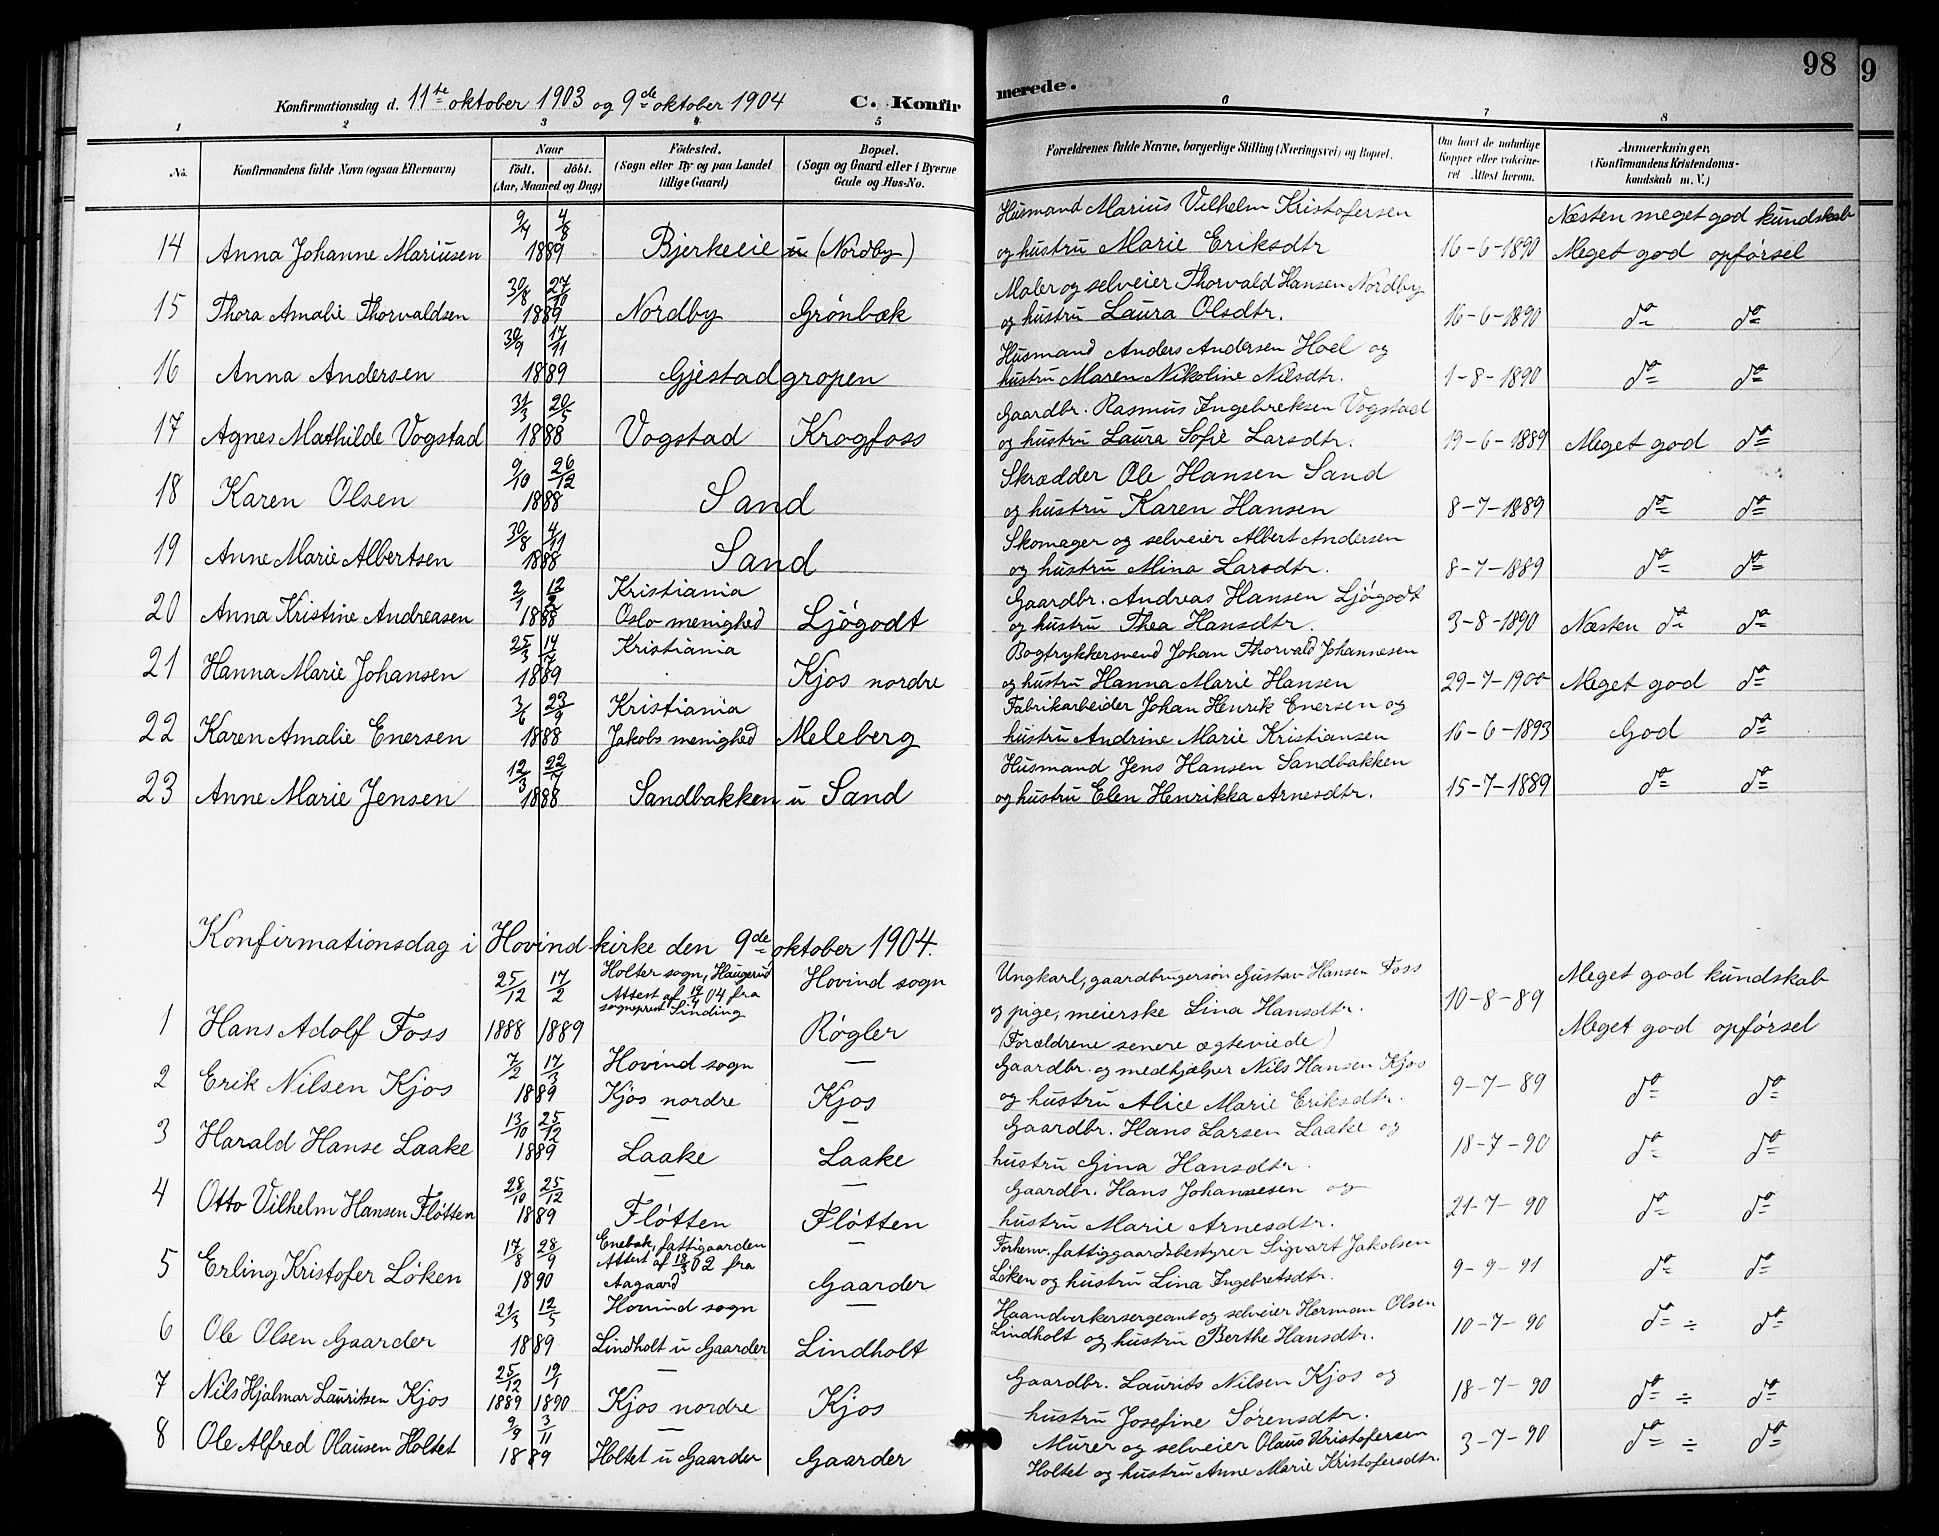 98
9
Konfirmationsdag d. 11te oktober 1903 og 9de oktober 1904 C. Konfirmerede.
1 2 3 4 5 6 7 8
No. Konfirmandens fulde Navn (ogsaa Efternavn) Naar født. døbt. (Aar, Maaned og Dag) Födested. (Sogn eller By og paa Landet tillige Gaard) Bopæl. (Sogn og Gaard eller i Byerne Gade og Hus-No. Forældrenes fulde Navne, borgerlige Stilling (Næringsvei) og Bopæl. Om havt de naturlige Kopper eller vakcineret. Attest herom. Anmærkninger, (Konfirmandens Kristendomskundskab m. V.)
9/4 4/8 Husmand Marius Vilhelm Kristofersen Næsten meget god kundskab
14 Anna Johanne Mariusen 1889 Bjerkeeie u (Nordby) og hustru Marie Eriksdtr 16-6-1890 Meget god opførsel
30/8 27/10 Maler og selveier Thorvald Hansen Nordby
15 Thora Amalie Thorvaldsen 1889 Nordby Grønbæk og hustru Laura Olsdtr. 16-6-1890 do do
30/9 17/11 Husmand Anders Andersen Hoel og
16 Anna Andersen 1889 Gjestadgropen hustru Maren Nikoline Nilsdtr. 1-8-1890 do do
31/3 20/5 Gaardbr. Rasmus Ingebreksen Vogstad
17 Agnes Mathilde Vogstad 1888 Vogstad Krogfoss og hustru Laura Sofie Larsdtr. 19-6-1889 Meget god do
9/10 26/12 Skrædder Ole Hansen Sand
18 Karen Olsen 1888 Sand og hustru Karen Hansen 8-7-1889 do do
30/8 4/11 Skomager og selveier Albert Andersen
19 Anne Marie Albertsen 1888 Sand og hustru Mina Larsdtr. 8-7-1889 do do
2/1 12/2 Kristiania Gaardbr. Andreas Hansen Ljøgodt
20 Anna Kristine Andreasen 1888 Oslo menighed Ljøgodt og hustru Thea Hansdtr. 3-8-1890 Næsten do do
25/3 14/7 Kristiania Bogtrykkersvend Johan Thorvald Johannesen
21 Hanna Marie Johansen 1889 Kjos nordre og hustru Hanna Marie Hansen 29-7-1900 Meget god do
3/6 23/9 Kristiania Fabrikarbeider Johan Henrik Enersen og
22 Karen Amalie Enersen 1888 Jakobs menighed Meleberg hustru Andrine Marie Kristiansen 16-6-1893 God do
12/3 22/7 Husmand Jens Hansen Sandbakken
23 Anne Marie Jensen 1888 Sandbakken u Sand og hustru Elen Henrikka Arnesdtr. 15-7-1889 do do
Konfirmationsdag i Hovind kirke den 9de oktober 1904.
25/12 17/2 Holter sogn, Haugerud Hovind sogn Ungkarl, gaardbrugersøn Gustav Hansen Foss Meget god kundskab
Attest af 17/4 04 fra
sogneprest Sinding og pige, meierske Lina Hansdtr. 10-8-89
1 Hans Adolf Foss 1888 1889 Røgler (Forældrene senere ægteviede) Meget god opførsel
7/2 17/3 Hovind sogn — Gaardbr. og medhjælper Nils Hansen Kjos
2 Erik Nilsen Kjos 1889 Kjos nordre Kjos og hustru Alice Marie Eriksdtr. 9-7-89 do do
13/10 25/12 — — Gaardbr. Hans Larsen Laake og
3 Harald Hanse Laake 1889 Laake Laake hustru Gina Hansdtr. 18-7-90 do do
28/10 25/12 — — Gaardbr. Hans Johannesen og
4 Otto Vilhelm Hansen Fløtten 1889 Fløtten Fløtten hustru Marie Arnesdtr. 21-7-90 do do
17/8 28/9 Enebak, fattigaarden — Forhenv. fattiggaardsbestyrer Sigvart Jakobsen
Attest af 18/3 02 fra
5 Erling Kristofer Løken 1890 Aagaard Gaarder Løken og hustru Lina Ingebretsdtr. 9-9-91 do do
21/3 12/5 Hovind sogn — Haandverkersergeant og selveier Herman Olsen
6 Ole Olsen Gaarder 1889 Lindholt u Gaarder Lindholt Lindholt og hustru Berthe Hansdtr. 10-7-90 do ÷ do
25/12 19/1 — Gaardbr. Laurits Nilsen Kjos og
7 Nils Hjalmar Lauritsen Kjos 1889 1890 Kjos nordre Kjos hustru Josefine Sørensdtr. 18-7-90 do ÷ do
9/9 3/11 — Murer og selveier Olaus Kristofersen
8 Ole Alfred Olausen Holtet 1889 Holtet u Gaarder Gaarder Holtet og hustru Anne Marie Kristofersdtr. 3-7-90 do ÷ do